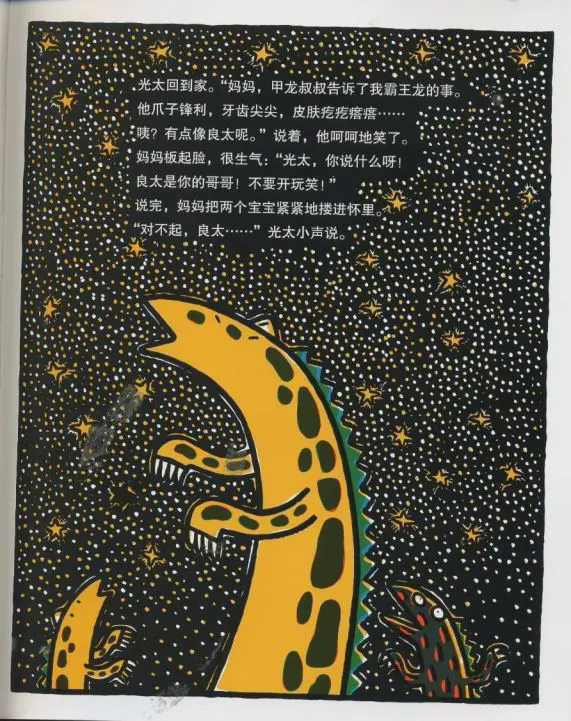 光太回到家。“妈妈，甲龙叔叔告诉了我霸王龙的事。
他爪子锋利，牙齿尖尖，皮肤疙疙瘩瘩……
咦？有点像良太呢。”说着，他呵呵地笑了。
妈妈板起脸，很生气：“光太，你说什么呀！
良太是你的哥哥！不要开玩笑！”
说完，妈妈把两个宝宝紧紧地搂进怀里。
“对不起，良太……”光太小声说。